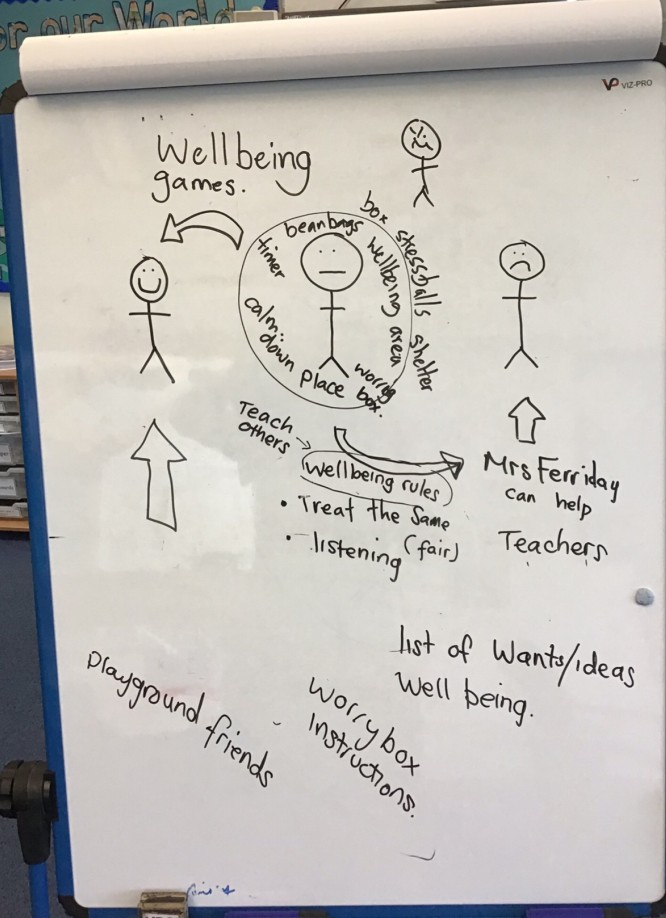 or our World
VIZ-PRO
Wellbeing
games.
beanbags
timer
box stressballs shelter
wellbeing area
calm down place
worry
box.
Teach
others
Wellbeing rules
• Treat the Same
(fair)
• listening
Mrs Ferriday
can help
Teachers
list of Wants/ideas
Well being.
Playground friends
Worry box
Instructions.